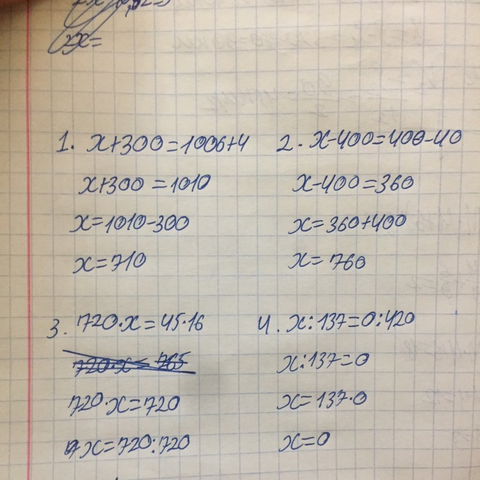 x=
1. x+300=1006+4
x+300=1010
x=1010-300
x=710
2. x-400=400-40
x-400=360
x=360+400
x=760
3. 720·x=45·16
720·x=765
720·x=720
x=720:720
4. x:137=0:420
x:137=0
x=137·0
x=0